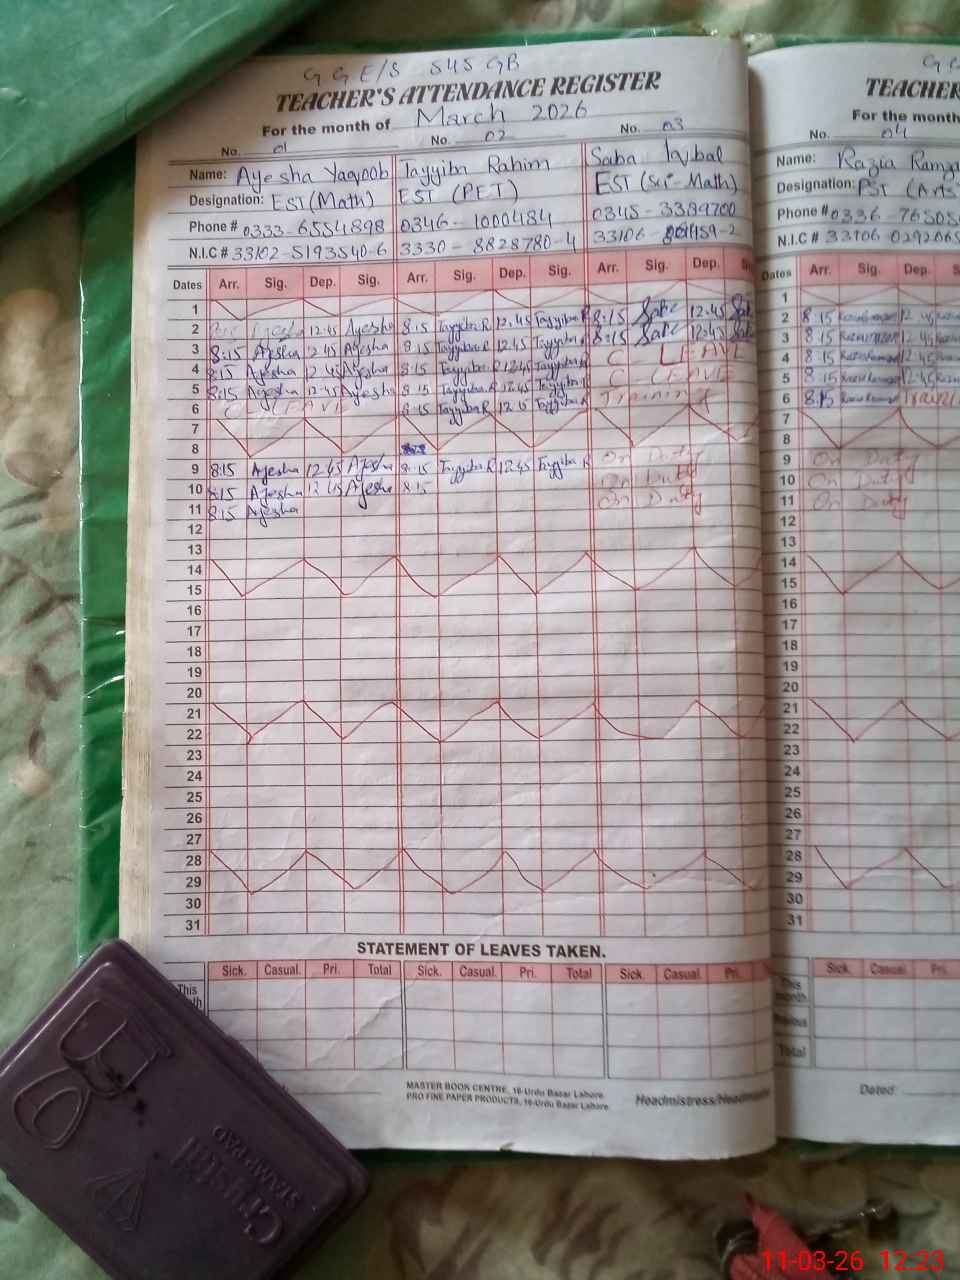 G G E/S 545 GB
TEACHER'S ATTENDANCE REGISTER
For the month of March 2026
No. 01 No. 02 No. 03
Name: Ayesha Yaqoob Tayyiba Rahim Saba Iqbal
Designation: EST (Math) EST (PET) EST (Sci-Math)
Phone # 0333-6554898 0346-1000484 0345-3389700
N.I.C # 33102-5193540-6 3330-8828780-4 33106-
Dates Arr. Sig. Dep. Sig. Arr. Sig. Dep. Sig. Arr. Sig. Dep.
1
2 Ayesha 12:45 Ayesha 8:15 Tayyiba R 12:45 Tayyiba R 8:15 Saba 12:45 Sab
3 8:15 Ayesha 12:45 Ayesha 8:15 Tayyiba R 12:45 Tayyiba R 8:15 Saba 12:45 Sab
4 8:15 Ayesha 12:45 Ayesha 8:15 Tayyiba R 12:45 Tayyiba R C LEAVE
5 8:15 Ayesha 12:45 Ayesha 8:15 Tayyiba R 12:45 Tayyiba R C LEAVE
6 C LEAVE 8:15 Tayyiba R 12:15 Tayyiba R Training
7
8
9 8:15 Ayesha 12:45 Ayesha 8:15 Tayyiba R 12:45 Tayyiba R On Duty
10 8:15 Ayesha 12:45 Ayesha 8:15 On Duty
11 8:15 Ayesha On Duty
12
13
14
15
16
17
18
19
20
21
22
23
24
25
26
27
28
29
30
31
STATEMENT OF LEAVES TAKEN.
Sick. Casual. Pri. Total Sick. Casual. Pri. Total Sick. Casual. Pri.
This
MASTER BOOK CENTRE, 16-Urdu Bazar Lahore.
PRO FINE PAPER PRODUCTS, 16-Urdu Bazar Lahore.
Headmistress/Headmaster
G G
TEACHER
For the month
No. 04
Name: Razia Ramza
Designation: PST (Arts)
Phone # 0336-76505
N.I.C # 33106 0292065
Dates Arr. Sig. Dep. Sig.
1
2 8:15 12:45
3 8:15 12:45
4 8:15 12:45
5 8:15 12:45
6 8:15
7
8
9 On Duty
10 On Duty
11 On Duty
12
13
14
15
16
17
18
19
20
21
22
23
24
25
26
27
28
29
30
31
Sick. Casual. Pri.
This
month
Total
Dated:
Crystal
STAMP PAD
11-03-26 12:23